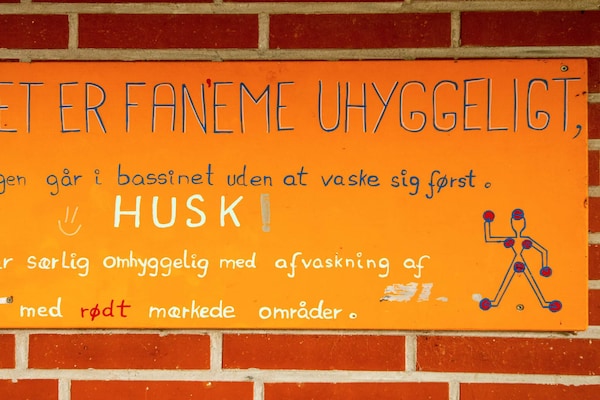 ET ER FAN'EME UHYGGELIGT,
gen går i bassinet uden at vaske sig først.
HUSK!
r særlig omhyggelig med afvaskning af
med rødt mærkede områder.